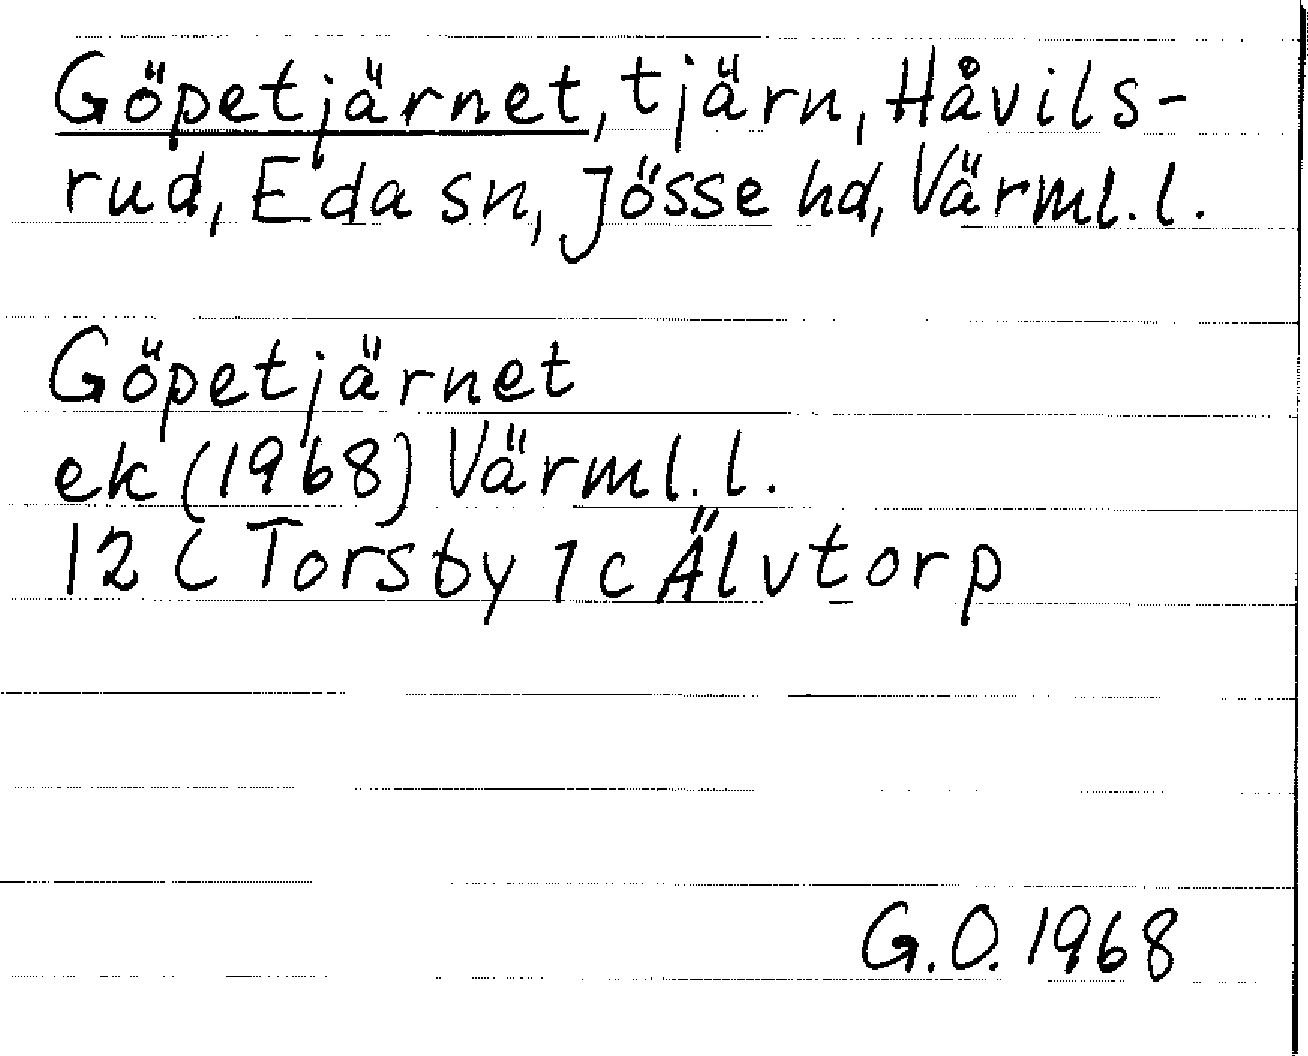 Göpetjärnet, tjärn, Håvils-
rud, Eda sn, Jösse hd, Värml. l.
Göpetjärnet
ek (1968) Värml. l.
12 C Torsby 1 c Älvtorp
G.O. 1968